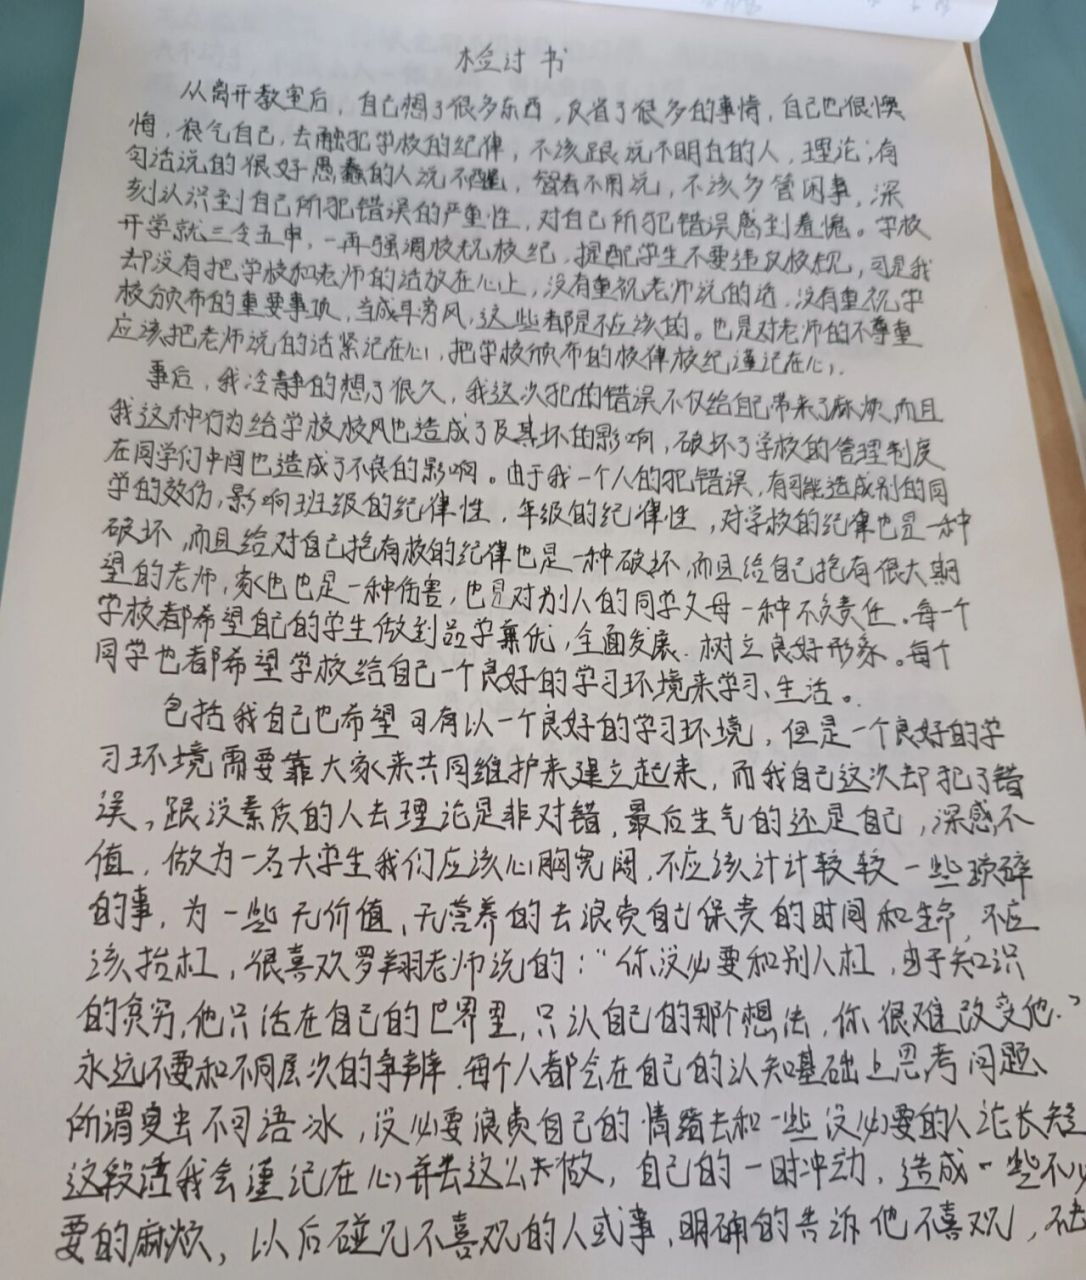 检讨书
从离开教室后，自己想了很多东西，反省了很多的事情，自己也很懊
悔，很气自己，去触犯学校的纪律，不该跟说不明白的人，理论，有
句话说的很好愚蠢的人说不醒，智者不用说，不该多管闲事，深
刻认识到自己所犯错误的严重性，对自己所犯错误感到羞愧。学校
开学就三令五申，一再强调校规校纪，提醒学生不要违反校规，可是我
却没有把学校和老师的话放在心上，没有重视老师说的话，没有重视学
校颁布的重要事项，当成耳旁风，这些都是不应该的。也是对老师的不尊重
应该把老师说的话紧记在心，把学校颁布的校律校纪谨记在心。
事后，我冷静的想了很久，我这次犯的错误不仅给自己带来了麻烦，而且
我这种行为给学校校风也造成了及其坏的影响，破坏了学校的管理制度
在同学们中间也造成了不良的影响。由于我一个人的犯错误，有可能造成别的同
学的效仿，影响班级的纪律性，年级的纪律性，对学校的纪律也是一种
破坏，而且给对自己抱有校的纪律也是一种破坏，而且给自己抱有很大期
望的老师，家也也是一种伤害，也是对别人的同学父母一种不负责任。每一个
学校都希望自己的学生做到品学兼优，全面发展、树立良好形象。每个
同学也都希望学校给自己一个良好的学习环境来学习、生活。
包括我自己也希望可有以一个良好的学习环境，但是一个良好的学
习环境需要靠大家来共同维护来建立起来，而我自己这次却犯了错
误，跟没素质的人去理论是非对错，最后生气的还是自己，深感不
值，做为一名大学生我们应该心胸宽阔，不应该计计较较一些琐碎
的事，为一些无价值、无营养的去浪费自己保贵的时间和生命，不应
该抬杠，很喜欢罗翔老师说的：“你没必要和别人杠，由于知识
的贫穷，他只活在自己的世界里，只认自己的那个想法，你很难改变他。”
永远不要和不同层次的争辩，每个人都会在自己的认知基础上思考问题、
所谓夏虫不可语冰，没必要浪费自己的情绪去和一些没必要的人论长短
这段话我会谨记在心并去这么去做，自己的一时冲动，造成一些不必
要的麻烦，以后碰见不喜欢的人或事，明确的告诉他不喜欢，不去